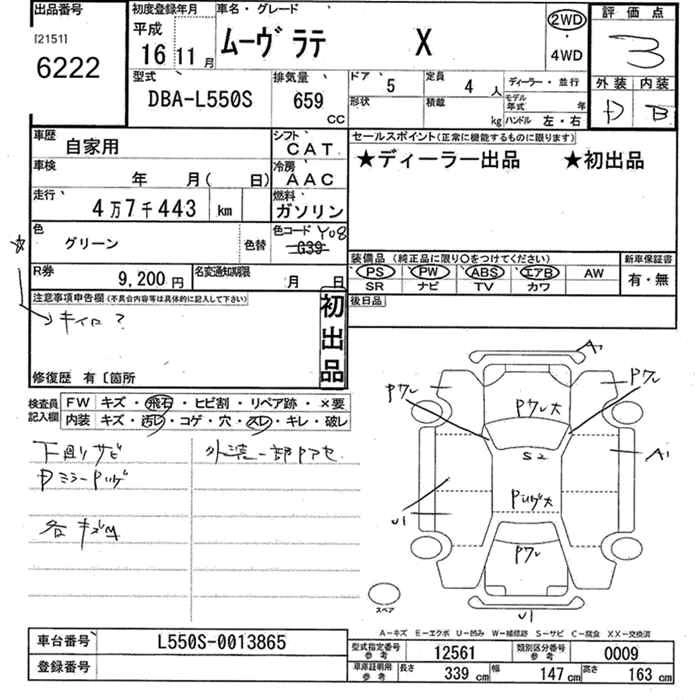 出品番号 初度登録年月 車名・グレード 評価点
[2151] 平成 2WD
6222 16 11月 ムーヴ ラテ X ・ 3
4WD
型式 排気量 ドア 5 定員 4人 ディーラー・並行 外装 内装
DBA-L550S 659 CC 形状 積載 kg モデル年式 年 D B
ハンドル 左・右
車歴 自家用 シフト CAT セールスポイント(正常に機能するものに限ります)
車検 年 月( 日) 冷房 AAC ★ディーラー出品 ★初出品
走行 4万7千443 km 燃料 ガソリン
色 グリーン 色替 色コード Y08
G39
装備品 (純正品に限り〇をつけてください) 新車保証書
R券 9,200円 名変通知期限 月 日 PS PW ABS エアB AW 有・無
SR ナビ TV カワ
注意事項申告欄(不具合内容等は具体的に記入して下さい) 初出品 後日品
☆→キイロ?
修復歴 有〔箇所
検査員記入欄 FW キズ・飛石・ヒビ割・リペア跡・×要
内装 キズ・汚レ・コゲ・穴・スレ・キレ・破レ
下廻りサビ 外装一部Pアセ
各キズ
A
Pアレ Pアレ大 Pアレ Pアレ
S2
A1
U1
Pアレ
スペア U1
A-キズ E-エクボ U-凹み W-補修跡 S-サビ C-腐食 XX-交換済
車台番号 L550S-0013865 型式指定番号参考 12561 類別区分番号参考 0009
登録番号 車庫証明用参考 長さ 339cm 幅 147cm 高さ 163cm